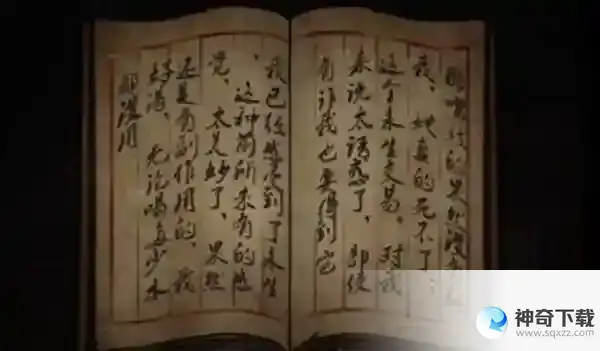 我，她真的死不了；
这个永生交易，对我
来说太诱惑了，即使
有诈我也要得到它
我已经感受到了永生
，这种前所未有的感
觉，太美妙了，果然
还是有副作用的，我
好渴，无论喝多少水
都没用
神奇下载
www.sqxzz.com